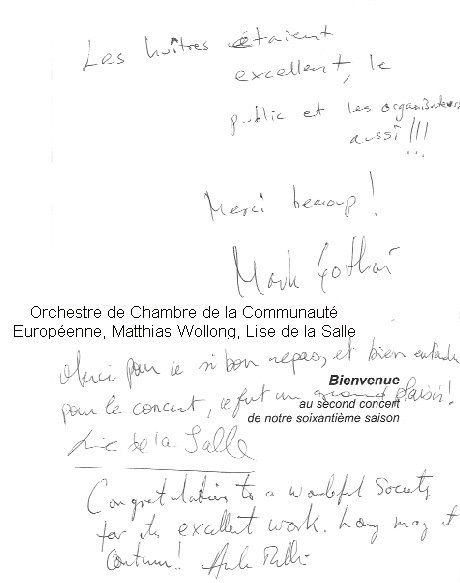 Les huîtres étaient
excellent, le
public et les organisateurs
aussi !!!
Merci beaucoup !
Mark
Orchestre de Chambre de la Communauté
Européenne, Matthias Wollong, Lise de la Salle
Merci pour ce si bon repas, et bien entendu
Bienvenue
pour le concert, ce fut un grand plaisir !
au second concert
de notre soixantième saison
Lise de la Salle
Congratulations to a wonderful Society
for its excellent work. Long may it
continue!